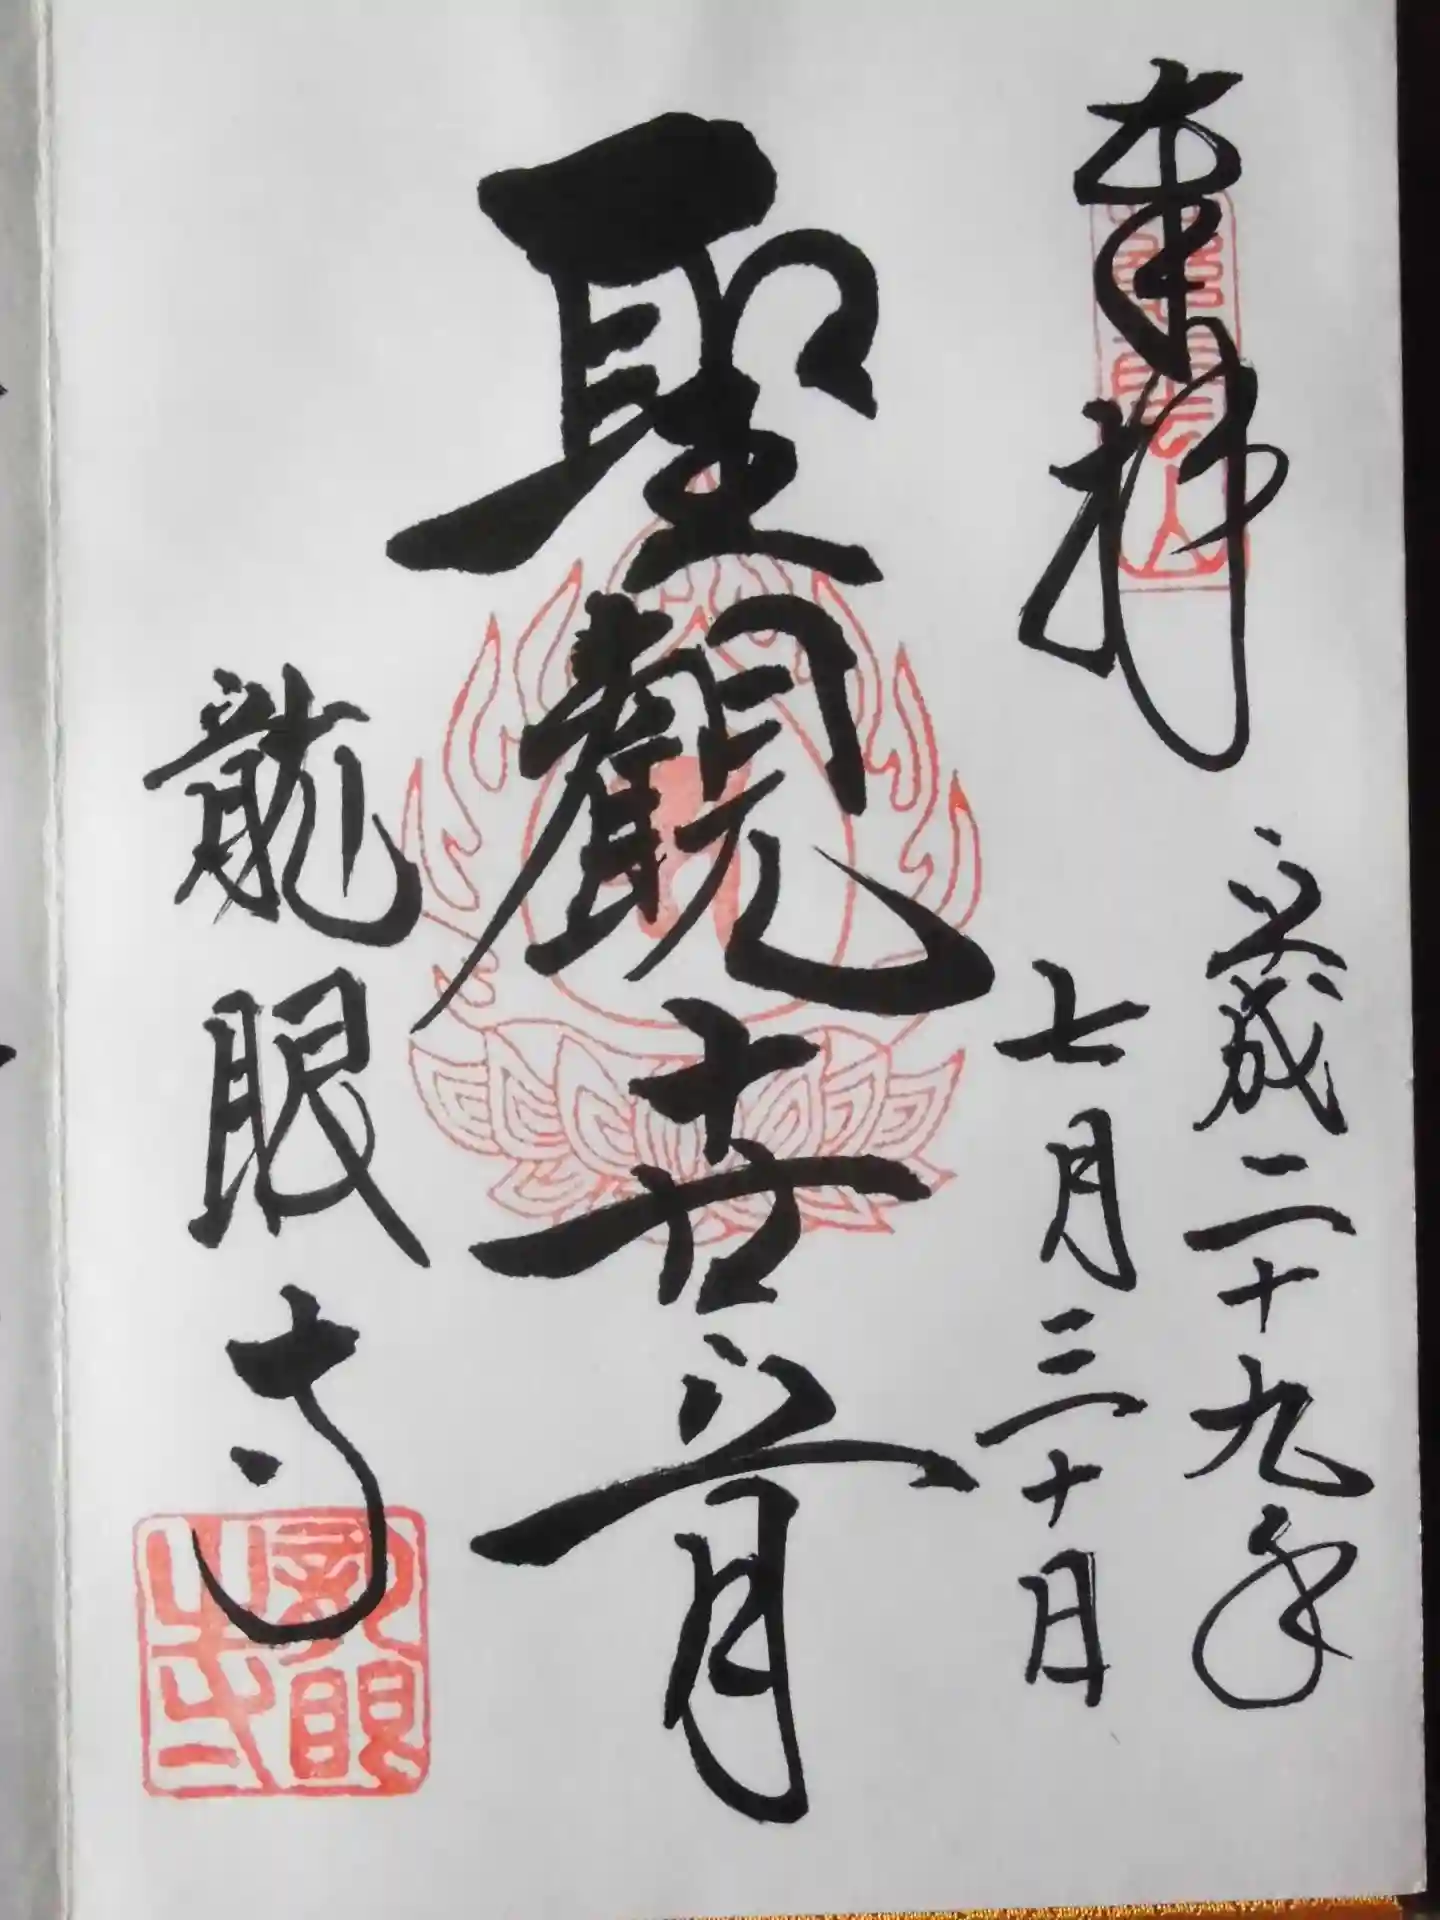 奉拝
平成二十九年
七月三十日
聖觀世音
龍眼寺